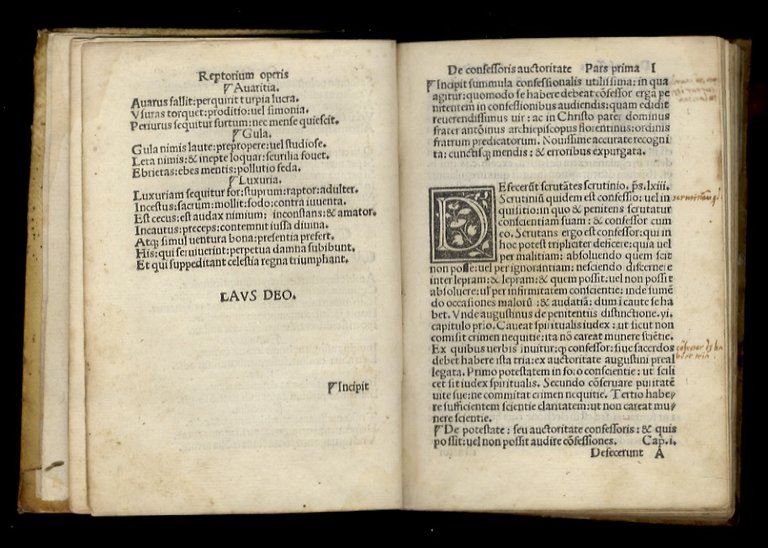 Reptorium operis
Auaritia.
Auarus fallit: perquirit turpia lucra.
Vsuras torquet: proditio: uel simonia.
Periurus sequitur furtum: nec mense quiescit.
Gula.
Gula nimis laute: prepropere: uel studiose.
Leta nimis: & inepte loquax: scurilia fouet.
Ebrietas: ebes mentis: pollutio feda.
Luxuria.
Luxuriam sequitur for: stuprum: raptor: adulter.
Incestus: sacrum: mollit: sodo: contra iuuenta.
Est cecus: est audax nimium; inconstans: & amator.
Incautus: preceps: contemnit iussa diuina.
Atq; simul uentura bona: presentia prefert.
His: qui seruiuerint: perpetua damna subibunt.
Et qui suppeditant celestia regna triumphant.
LAVS DEO.
Incipit
De confessoris auctoritate Pars prima I
Incipit summula confessionalis utilissima: in qua
agitur: quomodo se habere debeat cõfessor erga pe
nitentem in confessionibus audiendis: quam edidit
reuerendissimus uir: ac in Christo pater dominus
frater antõinus archiepiscopus florentinus: ordinis
fratrum predicatorum. Nouissime accurate recogni
ta: cunctisq; mendis: & erroribus expurgata.
DEfecerũt scrutãtes scrutinio. ps. lxiii.
Scrutiniũ quidem est confessio: uel in
quisitio: in quo & penitens scrutatur
conscientiam suam: & confessor cum
eo. Scrutans ergo est confessor: qui in
hoc potest tripliciter deficere: quia uel
per malitiam: absoluendo quem scit
non posse: uel per ignorantiam: nesciendo discerne
inter lepram: & lepram: & quem possit: uel non possit
absoluere: uel per infirmitatem conscientie: inde sumẽ
do occasiones malorũ: & audatiã: dum icaute se ha
bet. Vnde augustinus de penitentiis distinctione. vi.
capitulo prio. Caueat spiritualis iudex: ut sicut non
comisit crimen nequitie: ita nõ careat munere sciẽtie.
Ex quibus uerbis inuitur: q confessor: siue sacerdos
debet habere ista tria: ex auctoritate augustini preal
legata. Primo potestatem in foro conscientie: ut scili
cet sit iudex spiritualis. Secundo cõseruare puritatẽ
uite sue: ne commitat crimen nequitie. Tertio habe
re sufficientem scientie claritatem: ut non careat mu
nere scientie.
De potestate: seu auctoritate confessoris: & quis
possit: uel non possit audire cõfessiones. Cap. i.
Defecerunt A